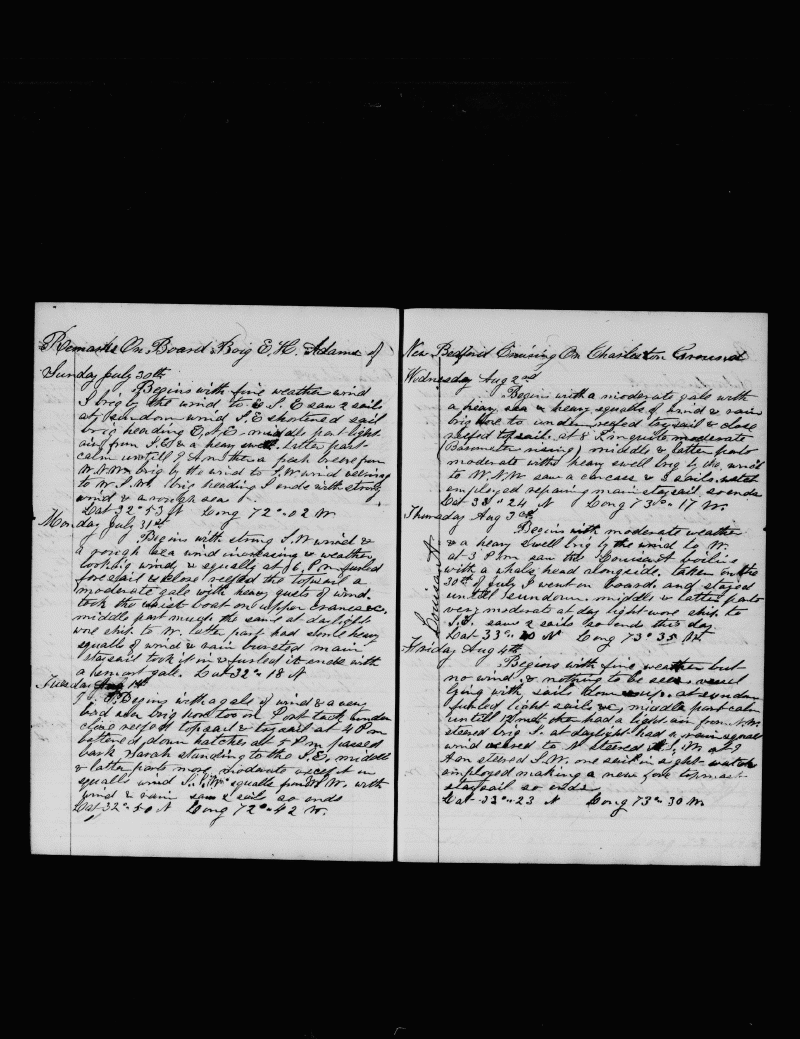 Remarks On Board Brig E. H. Adams of
Sunday July 30th
Begins with fine weather wind
S brig by the wind to E S. E saw 2 sails
at sundown wind S. E shortened sail
brig heading E, N, E. middle part light
airs from S. E & a heavy swell. latter part
calm untill 9 Am then a fresh breeze from
W. N. W. brig by the wind to S. W wind
to W. S. W. brig heading S ends with strong
wind & a rough sea
Lat 32°.. 53 N Long 72°.. 02 W
Monday July 31st
Begins with strong S. W wind &
a rough sea wind increasing & weather
looking wind, & squally at 6, P.m furled
foresail & close reefed the topsail a
moderate gale with heavy gusts of wind.
took the waist boat on upper cranes &c.
middle part much the same at daylight
wore ship to W. latter part had some heavy
squalls of wind & rain bursted main
staysail took it in & furled it ends with
a gale. Lat 32°.. 18 N
Tuesday Aug 1st
Begins with a gale of wind & a very
bad sea brig hove too on Port tack under
close reefed topsail & trysail at 4 P.m
battened down hatches at 5 P.m passed
bark Sarah standing to the S. E. middle
& latter parts more moderate except in
squalls wind squalls from W. with
wind & rain saw 2 sails so ends
Lat 32°.. 50 N Long 72°.. 42 W.
New Bedford Cruising On Charleston Ground
Wednesday Aug 2nd
Begins with a moderate gale with
a heavy sea & heavy squalls of wind & rain
brig hove to under reefed trysail & close
reefed topsail. at 8 P.m quite moderate
(Barometer rising) middle & latter parts
moderate with heavy swell brig by the wind
to W. N. W saw a carcass & 3 sails. watch
employed repairing main staysail so ends
Lat 33°.. 24 N Long 73°.. 17 W.
Thursday Aug 3rd
Begins with moderate weather
& a heavy swell brig by the wind to W.
at 3 P.m saw the Louisa A boiling
with a whale head alongside. taken on the
30th of July I went on board. and stayed
untill sundown. middle & latter parts
very moderate at day light wore ship to
S. E. saw 2 sails so ends this day
Lat 33°.. N Long 73°.. 35 W
Louisa A
Friday Aug 4th
Begins with fine weather but
no wind, & nothing to be seen. vessel
lying with sails clewed up. at sundown
furled light sails &c, middle part calm
untill 12 mdt then had a light air from N. W
steered brig S. at daylight had a rain squall
wind veered to N steered S. W at 9
Am steered S. W. one sail in sight watch
employed making a new fore topmast
staysail so ends
Lat 33°.. 23 N Long 73°.. 30 W